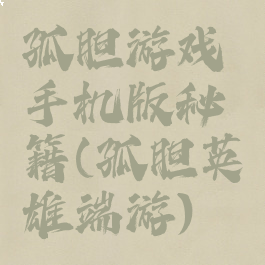 孤胆游戏
手机版秘
籍(孤胆英
雄端游)